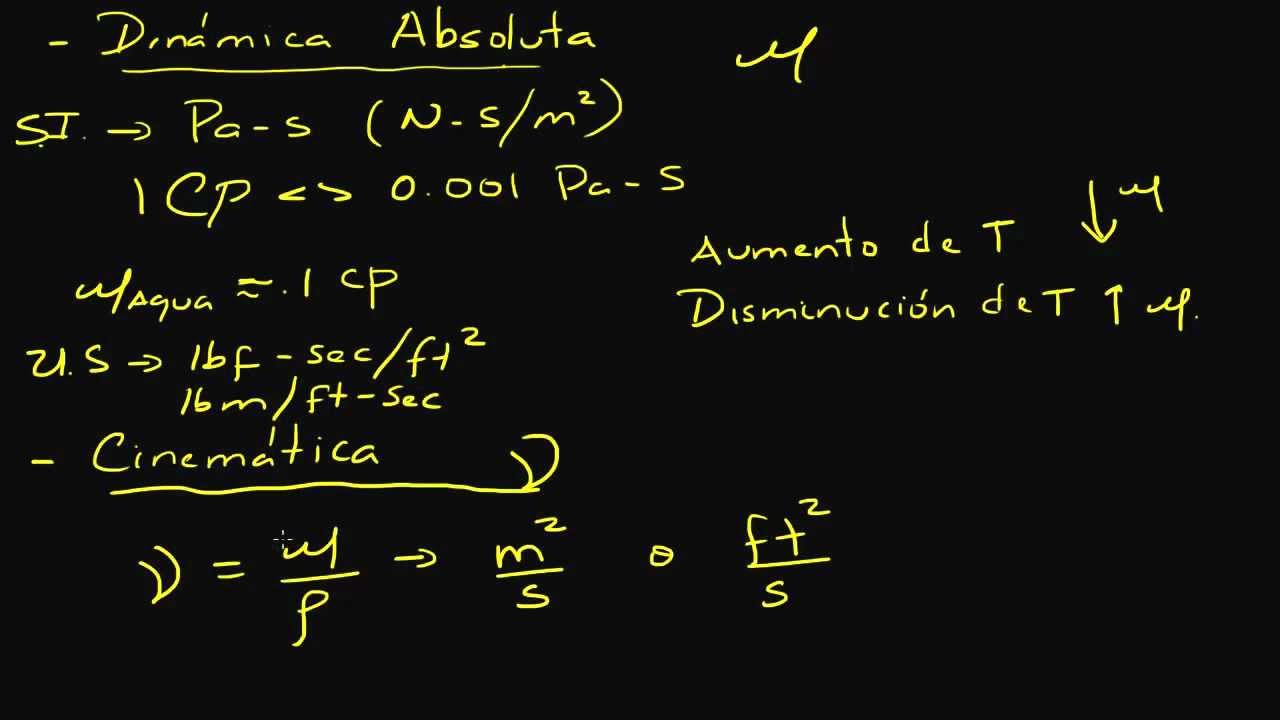 - Dinámica Absoluta μ
S.I. → Pa-s (N-s/m²)
1 CP <> 0.001 Pa-s
Aumento de T ↓ μ
Disminución de T ↑ μ.
μAgua ≈ .1 CP
U.S → lbf-sec/ft²
lbm/ft-sec
- Cinemática ν
ν = μ/ρ → m²/s o ft²/s